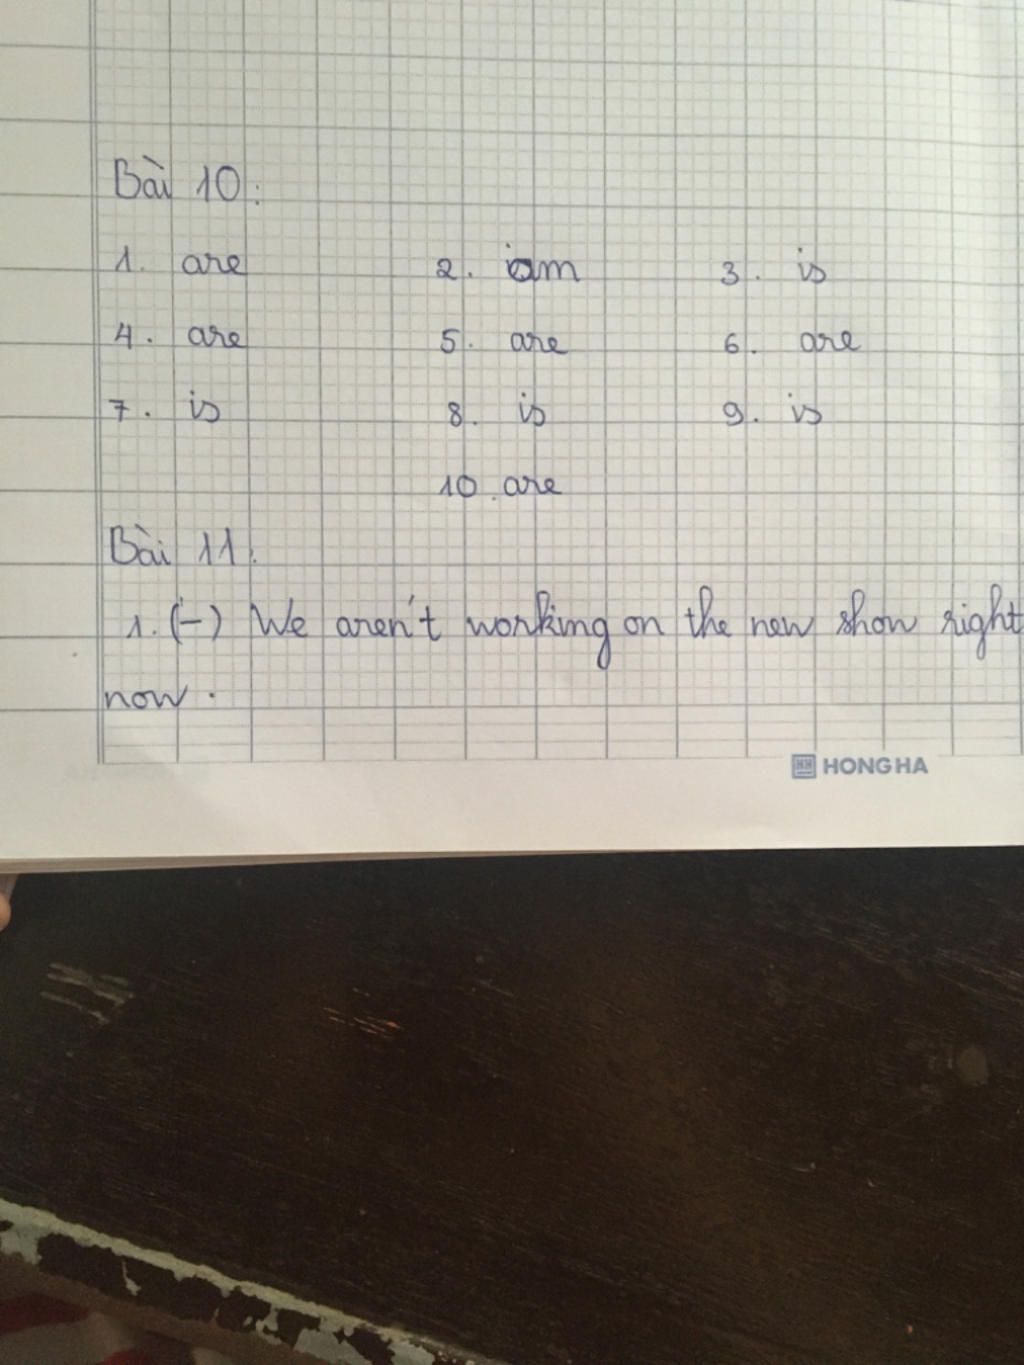 Bài 10:
1. are 2. am 3. is
4. are 5. are 6. are
7. is 8. is 9. is
10. are
Bài 11:
1. (-) We aren't working on the new show right
now.
HH HONG HA